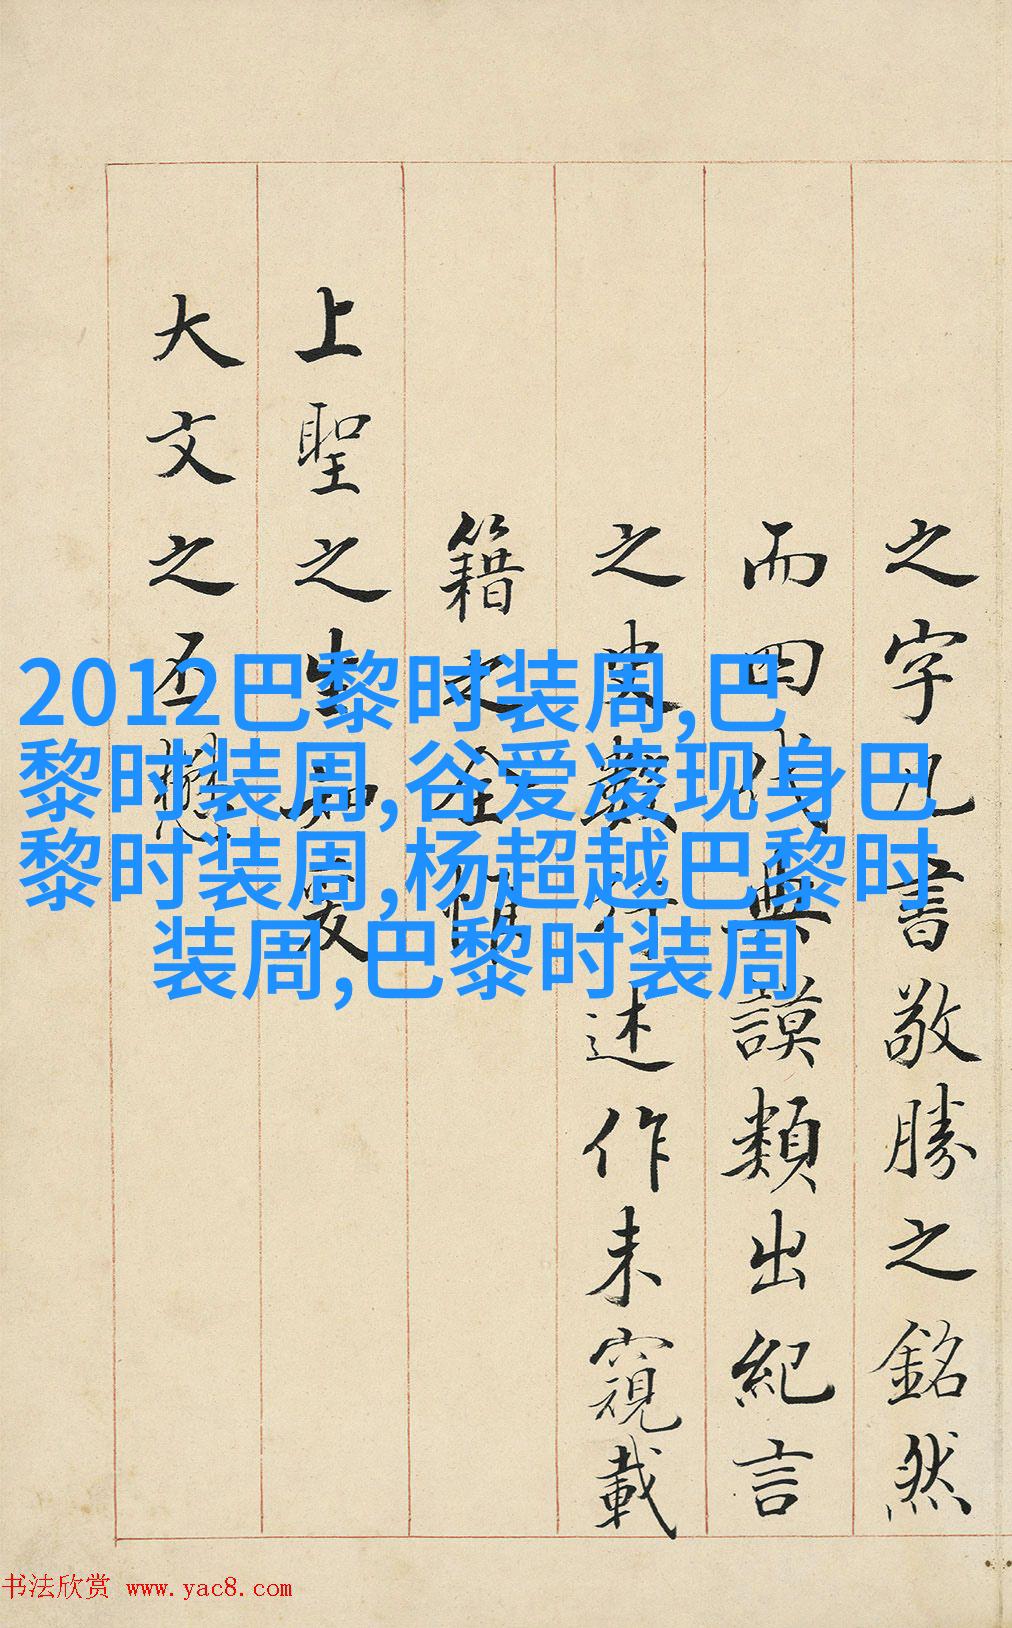 之字九書敬勝之銘然
而四代典謨類出紀言
之史散行述作未窺載
籍之全朗
上聖之生知爰
大文之丕懋
2012巴黎时装周,巴
黎时装周,谷爱凌现身巴
黎时装周,杨超越巴黎时
装周,巴黎时装周
书法欣赏 www.yac8.com